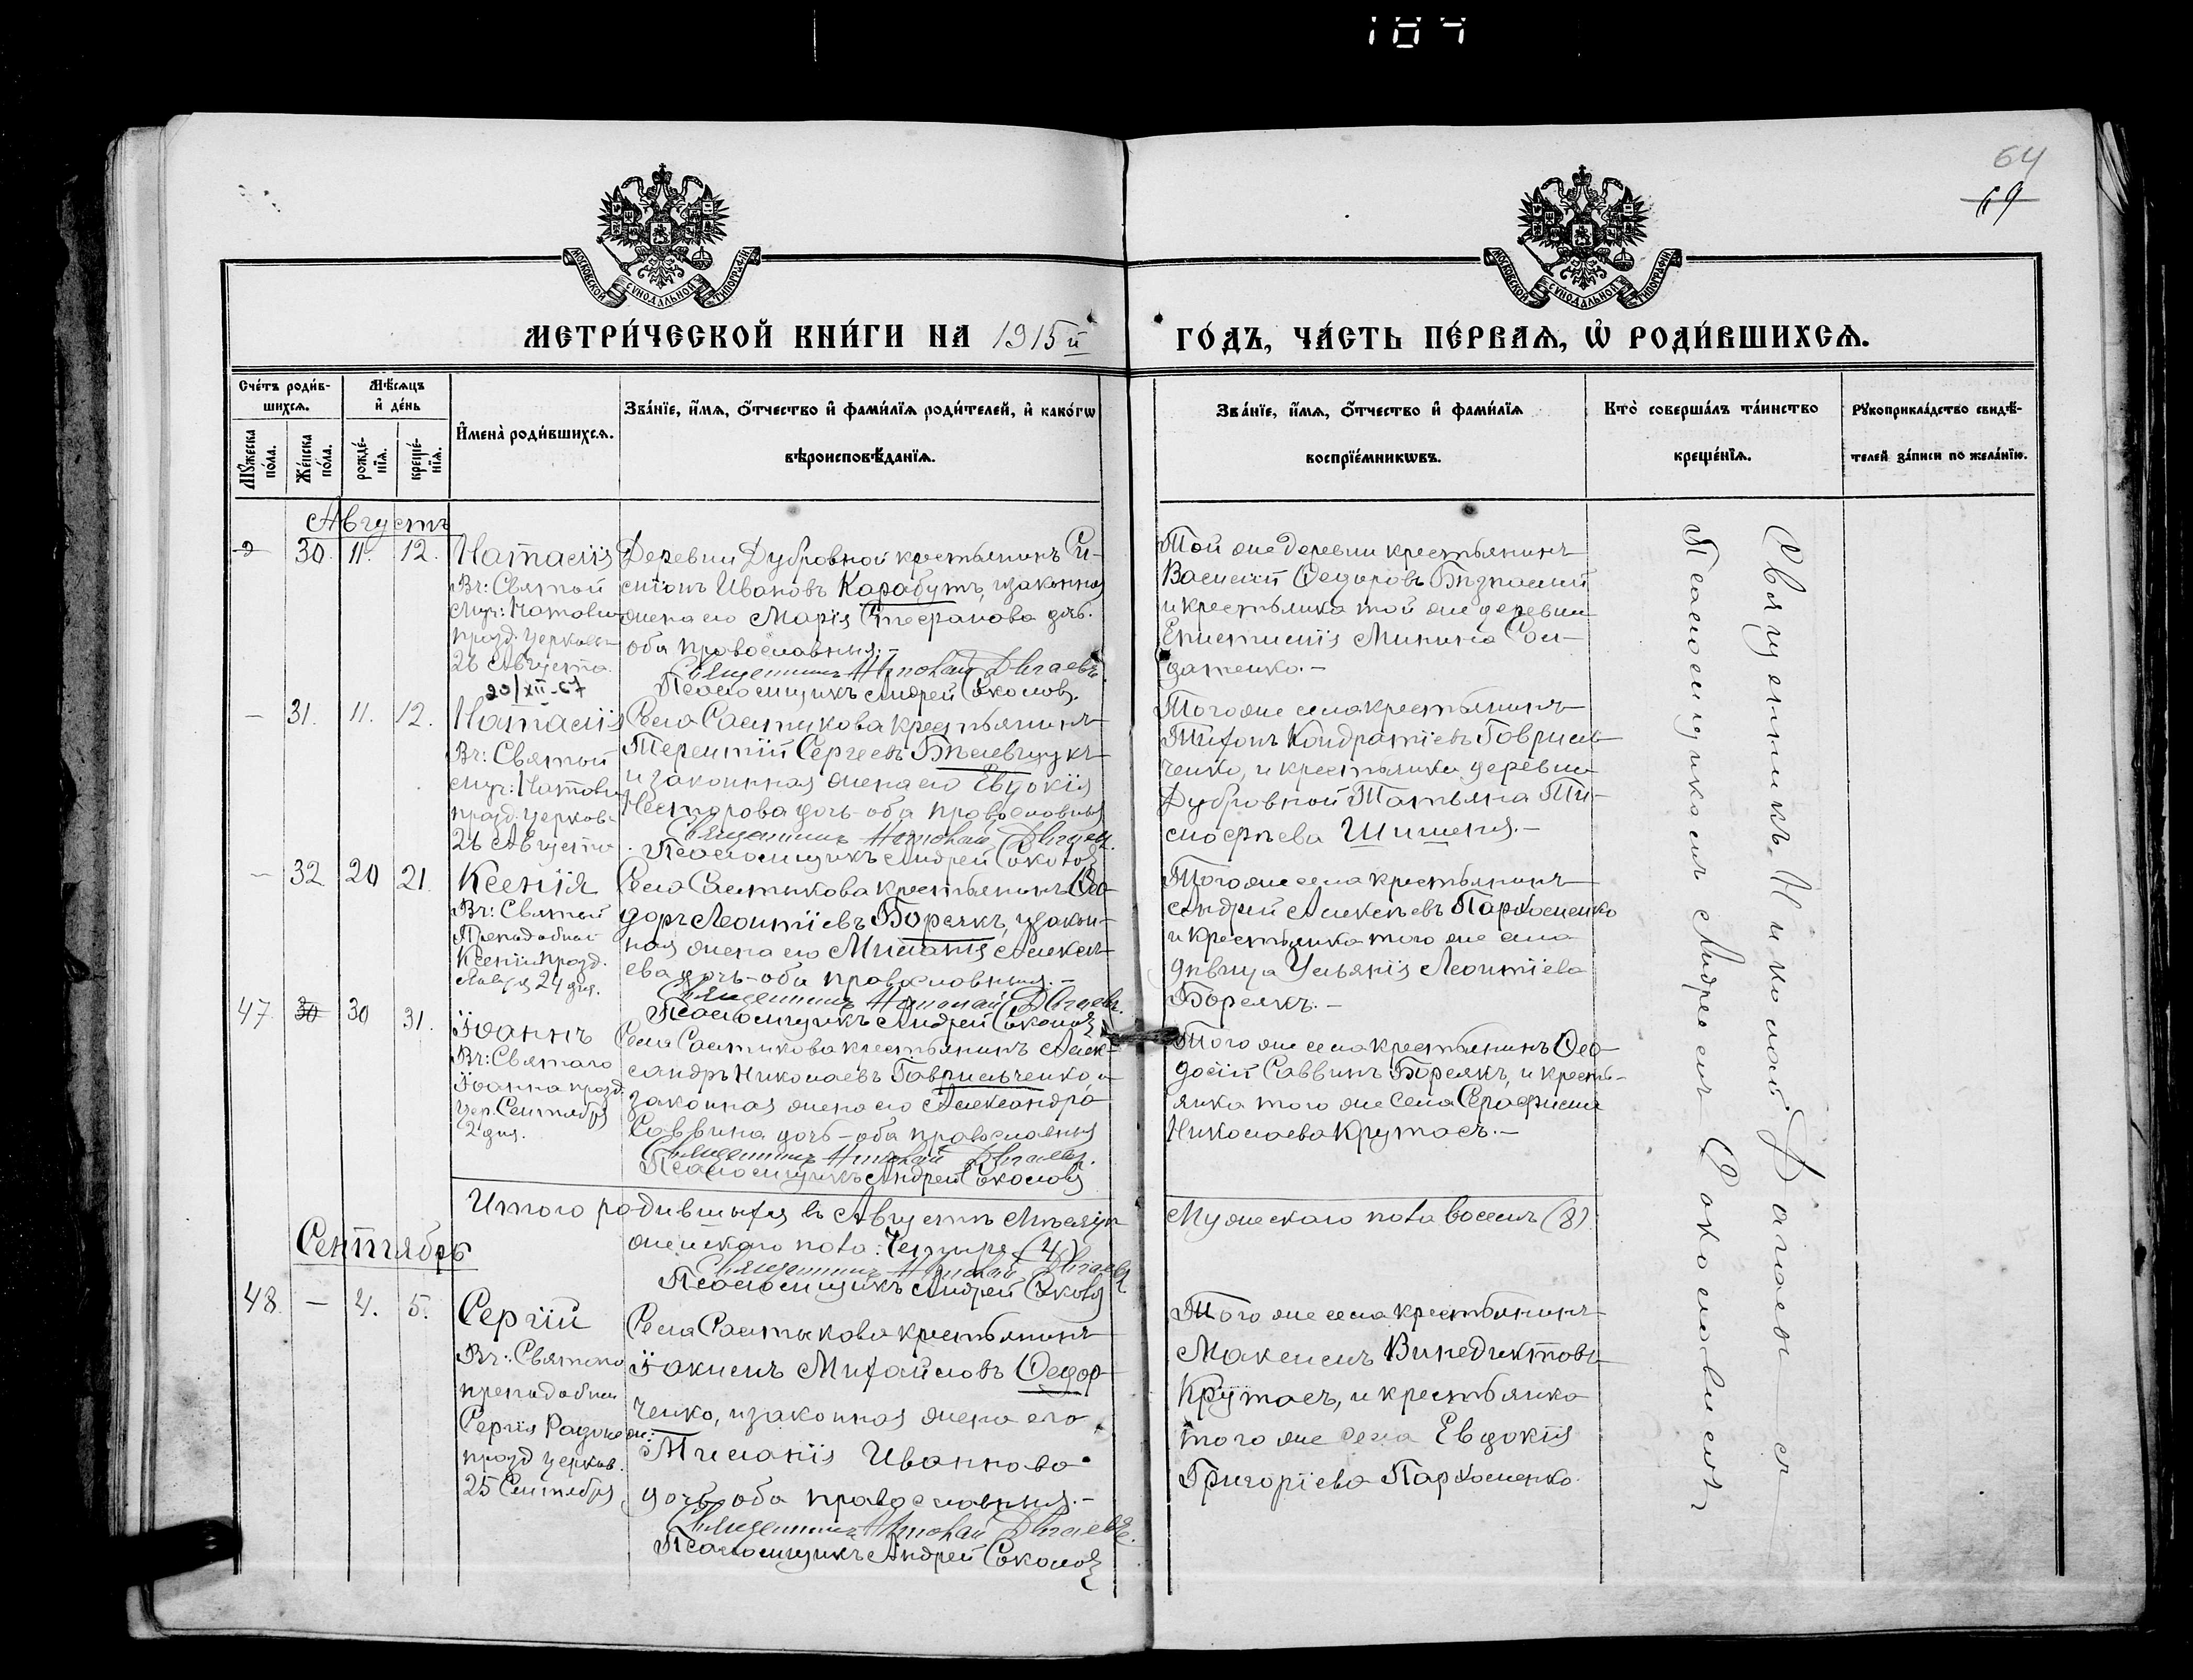 187
64
69
МОСКОВСКОЙ СУНОДАЛЬНОЙ ТИПОГРАФІИ
МОСКОВСКОЙ СУНОДАЛЬНОЙ ТИПОГРАФІИ
МЕТРИ́ЧЕСКОЙ КНИ́ГИ НА 1915й
ГО́ДЪ, ЧА́СТЬ ПЕ́РВАѦ, Ѡ҆ РОДИ́ВШИХСѦ.
Сче́тъ роди́в-
шихсѧ.
Мѣ́сѧцъ
и҆ де́нь
Мꙋ́жеска по́ла.
Же́нска по́ла.
рожде́-
нїѧ.
креще́-
нїѧ.
И҆мена̀ роди́вшихсѧ.
Зва́нїе, и҆́мѧ, ѻ҆́тчество и҆ фами́лїѧ роди́телей, и҆ како́гѡ
вѣроисповѣ́данїѧ.
Зва́нїе, и҆́мѧ, ѻ҆́тчество и҆ фами́лїѧ
воспрїе́мникѡвъ.
Кто̀ соверша́лъ та́инство
креще́нїѧ.
Рꙋкоприкла́дство свидѣ́-
телей за́писи по жела́нїю.
Августъ
30. 11. 12.
Наталія
Въ: Святой
муч: Наталіи
празд. церковь
26 Августа
20/XII-67
Деревни Дубровной крестьянинъ
Ивановъ Карабутъ, и законная
жена его Марія Стефанова дочь.
оба православныя.-
Священникъ Николай Дягаевъ.
Псаломщикъ Андрей Соколовъ.
Той же деревни крестьянинъ
Василій Ѳедоровъ
и крестьянка той же деревни
Епистимія Минина Сол-
датенко.-
— 31. 11. 12.
Наталія
Въ: Святой
муч: Наталіи
празд. церков.
26 Августа
Села Салтыкова крестьянинъ
Терентій Сергеевъ
и законная жена его Евдокія
Несторова дочь-оба православныя
Священникъ Николай Дягаевъ.
Псаломщикъ Андрей Соколовъ
Того же села крестьянинъ
Тихонъ Кондратіевъ Гавриль-
ченко, и крестьянка деревни
Дубровной Татьяна Ти-
мофѣева Шишеня.-
— 32 20 21.
Ксенія
Въ: Святый
Преподобной
Ксеніи празд.
Января 24 дня.
Села Салтыкова крестьянинъ Ѳео-
доръ Леонтіевъ Борсякъ, и закон-
ная жена его Миланія Алексѣ-
ева дочь-оба православныя.-
Священникъ Николай Дягаевъ.
Псаломщикъ Андрей Соколовъ
Того же села крестьянинъ
Андрей Алексѣевъ Пархоменко
и крестьянка того же села
дѣвица Ульянія Леонтіева
Борсякъ.-
47. 30 30 31.
Іоаннъ
Въ: Святаго
Іоанна празд.
цер. Сентября
2 дня.
Села Салтыкова крестьянинъ Алек-
сандръ Николаевъ Гаврильченко, и
законная жена его Александра
Саввина дочь-оба православныя
Священникъ Николай Дягаевъ.
Псаломщикъ Андрей Соколовъ
Того же села крестьянинъ Ѳео-
досій Саввинъ Борсякъ, и кресть-
янка того же села Серафима
Николаева Крутась.-
Итого родившихся въ Августѣ Мѣсяцѣ
женскаго пола: Четыре (4)
Мужескаго пола восемь (8).
Священникъ Николай Дягаевъ
Псаломщикъ Андрей Соколовъ
Сентябрь
48. — 4. 5.
Сергій
Въ: Святого
преподобн
Сергія Радонеж:
празд церков.
25 Сентября
Села Салтыкова крестьянинъ
Іакимъ Михайловъ Ѳедор-
ченко, и законная жена его
Миланія Иваннова
дочь-оба православныя.-
Священникъ Николай Дягаевъ.
Псаломщикъ Андрей Соколовъ
Того же села крестьянинъ
Максимъ Винедиктовъ
Крутась, и крестьянка
того же села Евдокія
Григоріева Пархоменко.
Священникъ Николай Дягаевъ съ
Псаломщикомъ Андреемъ Соколовымъ